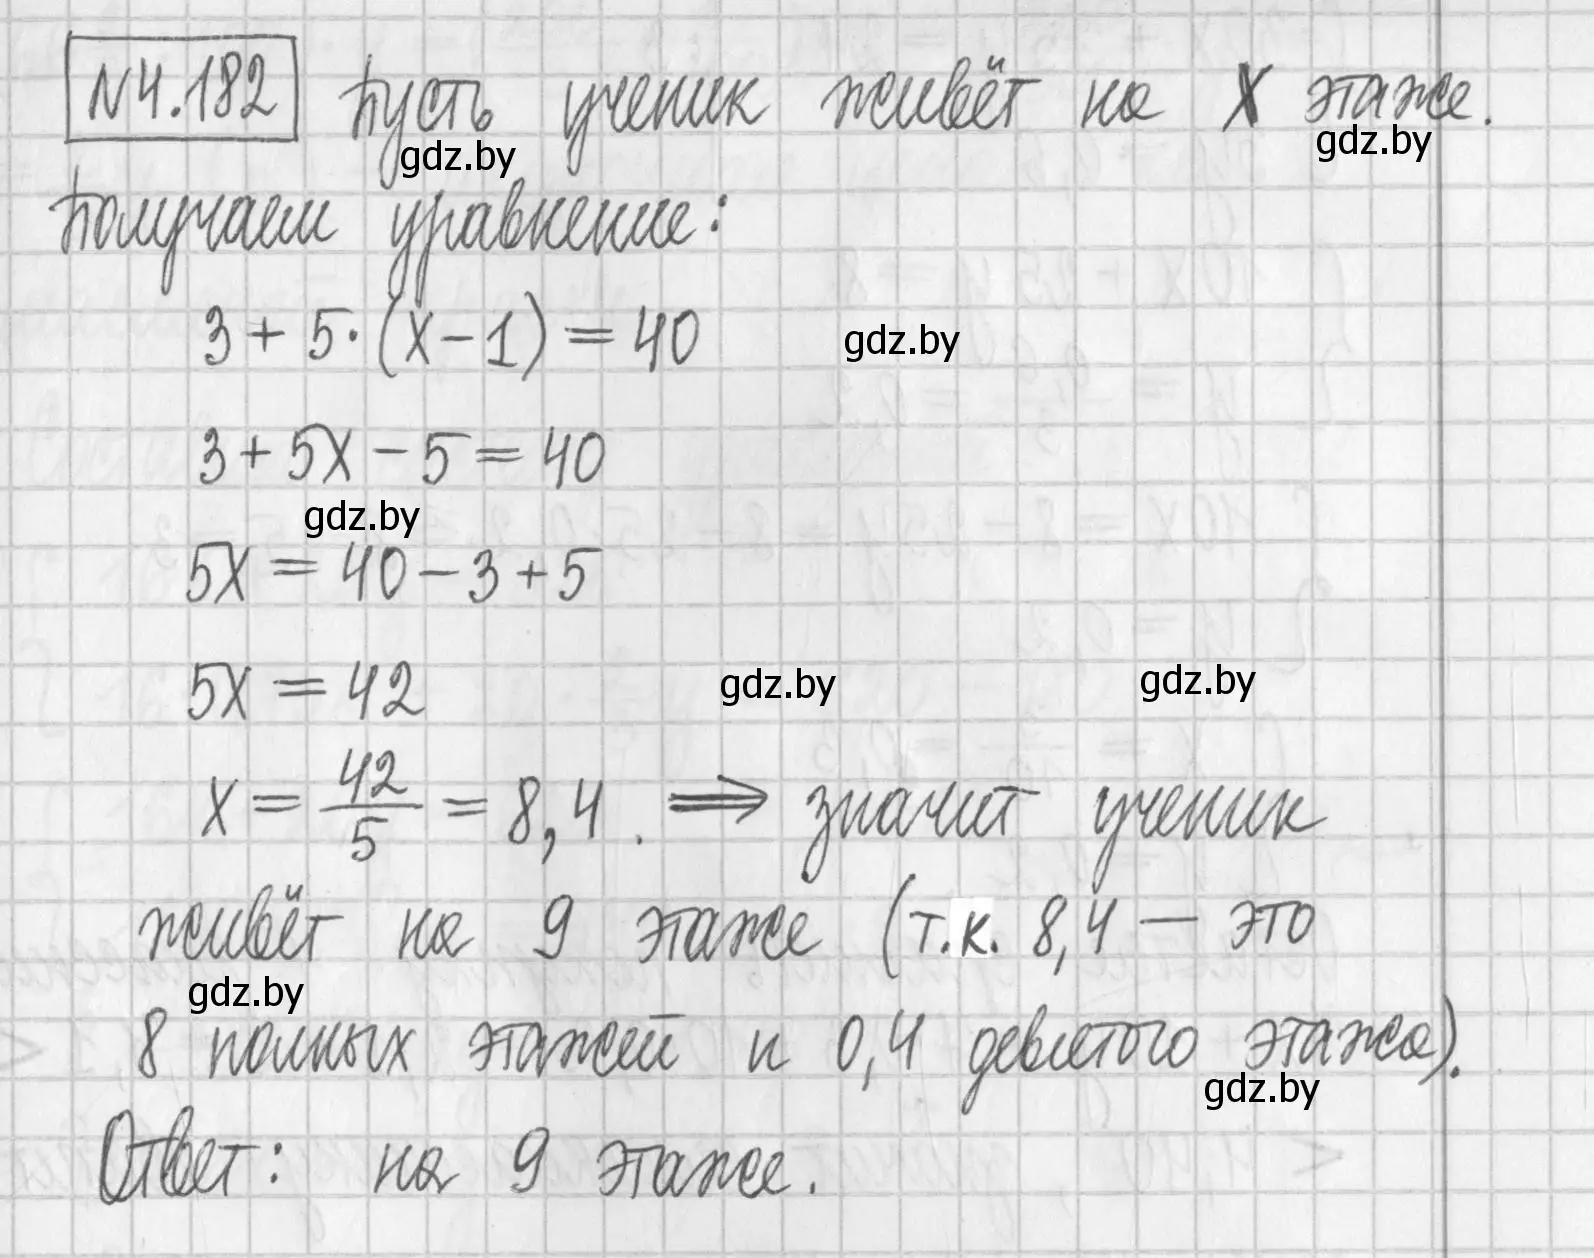 №4.182 Пусть ученик живёт на X этаже.
gdz.by gdz.by
Получаем уравнение:
3 + 5·(x-1) = 40
gdz.by
3 + 5x - 5 = 40
gdz.by
5x = 40 - 3 + 5
5x = 42
gdz.by gdz.by
x = 42/5 = 8,4. ⟹ значит ученик
живёт на 9 этаже (т.к. 8,4 — это
gdz.by
8 полных этажей и 0,4 девятого этажа).
gdz.by
Ответ: на 9 этаже.